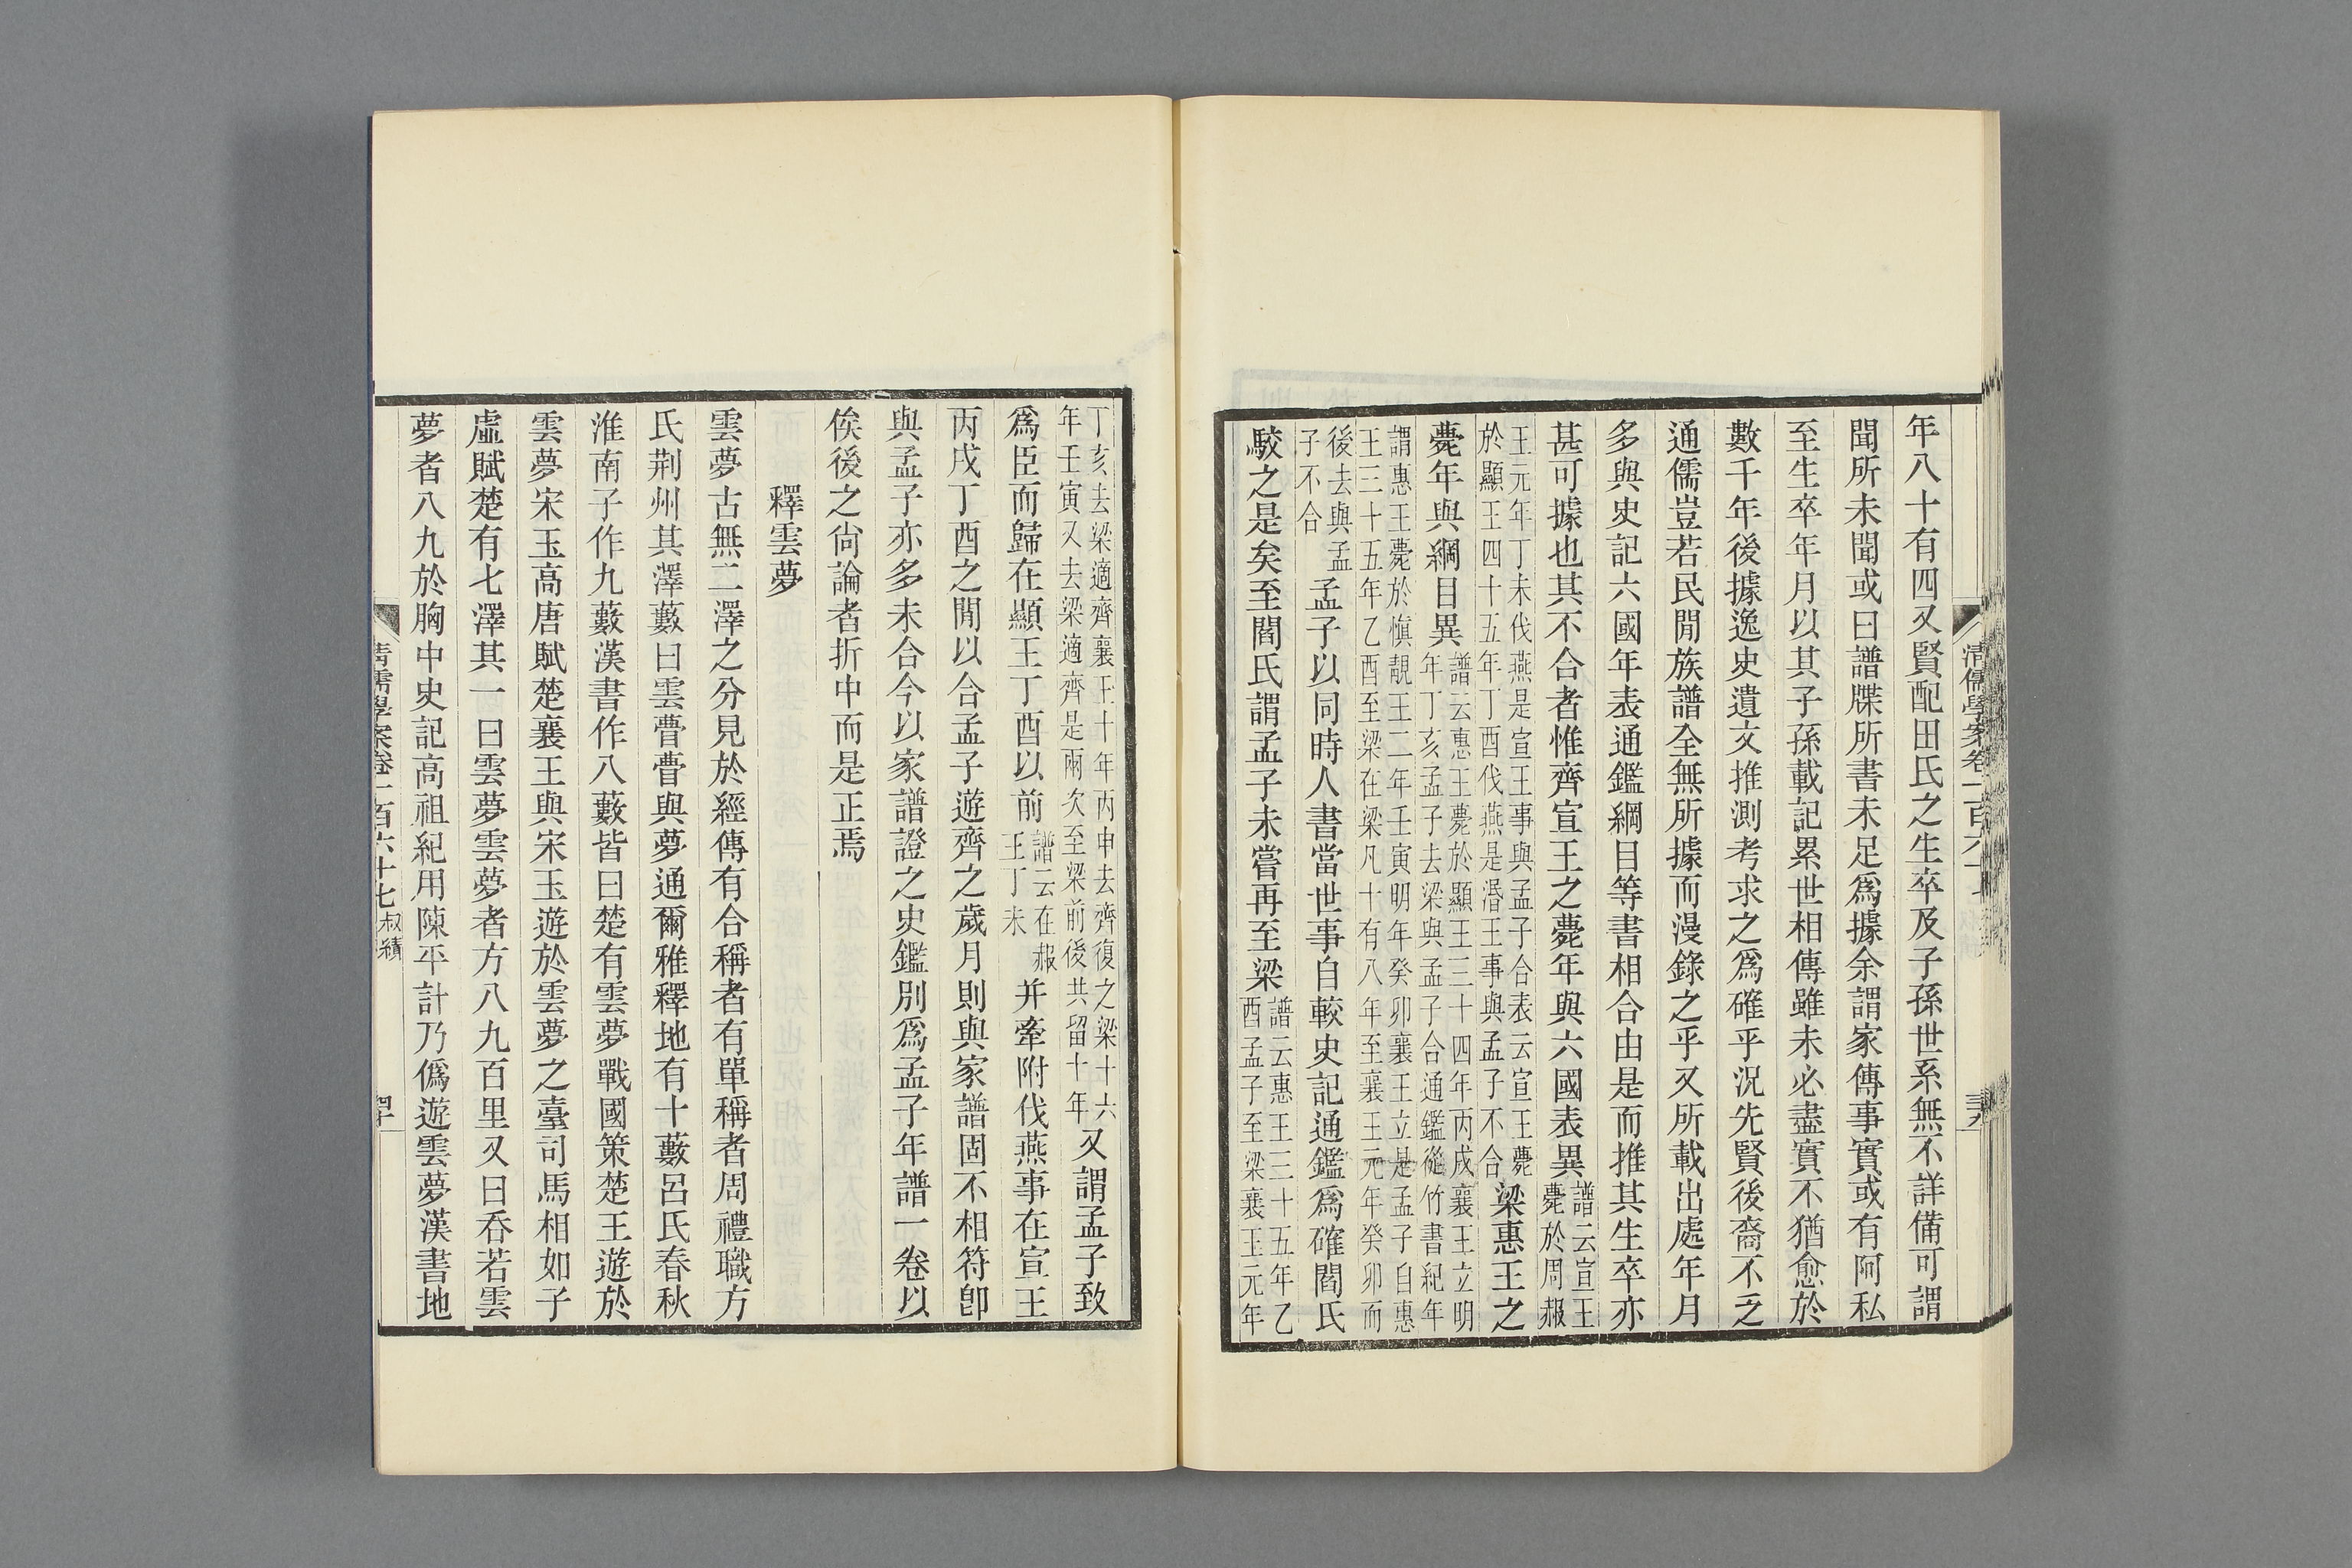 清儒學案卷一百六十七
年八十有四又賢配田氏之生卒及子孫世系無不詳備可謂
聞所未聞或曰譜牒所書未足爲據余謂家傳事實或有阿私
至生卒年月以其子孫載記累世相傳雖未必盡實不猶愈於
數千年後據逸史遺文推測考求之爲確乎況先賢後裔不乏
通儒豈若民閒族譜全無所據而漫錄之乎又所載出處年月
多與史記六國年表通鑑綱目等書相合由是而推其生卒亦
甚可據也其不合者惟齊宣王之薨年與六國表異譜云宣王薨於周赧
王元年丁未伐燕是宣王事與孟子合表云宣王薨於顯王四十五年丁酉伐燕是湣王事與孟子不合梁惠王之
薨年與綱目異譜云惠王薨於顯王三十四年丙戌襄王立明年丁亥孟子去梁與孟子合通鑑從竹書紀年
謂惠王薨於愼靚王二年壬寅明年癸卯襄王立是孟子自惠王三十五年乙酉至梁在梁凡十有八年至襄王元年癸卯而
後去與孟子不合孟子以同時人書當世事自較史記通鑑爲確閻氏
駮之是矣至閻氏謂孟子未嘗再至梁譜云惠王三十五年乙酉孟子至梁襄王元年
丁亥去梁適齊襄王十年丙申去齊復之梁十六年壬寅又去梁適齊是兩次至梁前後共留十年又謂孟子致
爲臣而歸在顯王丁酉以前譜云在赧王丁未并牽附伐燕事在宣王
丙戌丁酉之閒以合孟子遊齊之歲月則與家譜固不相符卽
與孟子亦多未合今以家譜證之史鑑別爲孟子年譜一卷以
俟後之尙論者折中而是正焉
釋雲夢
雲夢古無二澤之分見於經傳有合稱者有單稱者周禮職方
氏荆州其澤藪曰雲瞢瞢與夢通爾雅釋地有十藪呂氏春秋
淮南子作九藪漢書作八藪皆曰楚有雲夢戰國策楚王遊於
雲夢宋玉高唐賦楚襄王與宋玉遊於雲夢之臺司馬相如子
虛賦楚有七澤其一曰雲夢雲夢者方八九百里又曰呑若雲
夢者八九於胸中史記高祖紀用陳平計乃僞遊雲夢漢書地
清儒學案卷一百六十七 叔績
四十